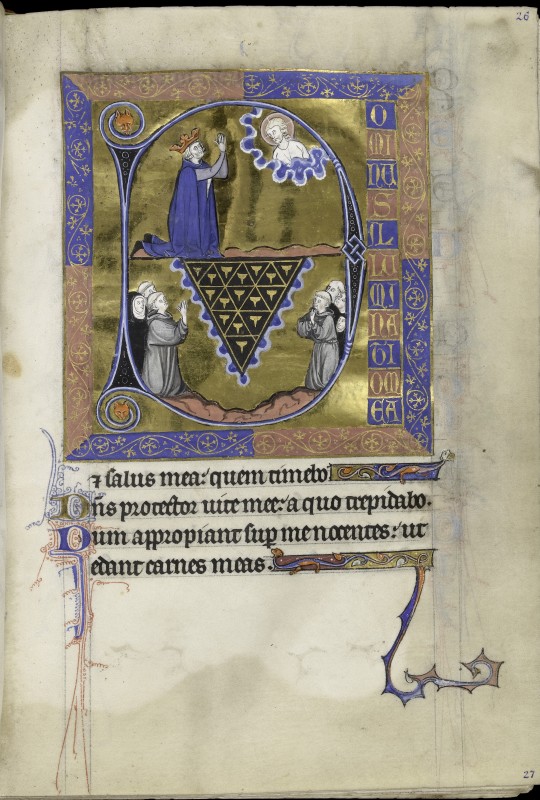 26
D
O
MI
NUS
IL
LU
MI
NA
TI
OM
EA
⁊ salus mea: quem timebo
Dns protector uite mee: a quo trepidabo.
Dum appropiant sup me nocentes: ut
edant carnes meas.
27